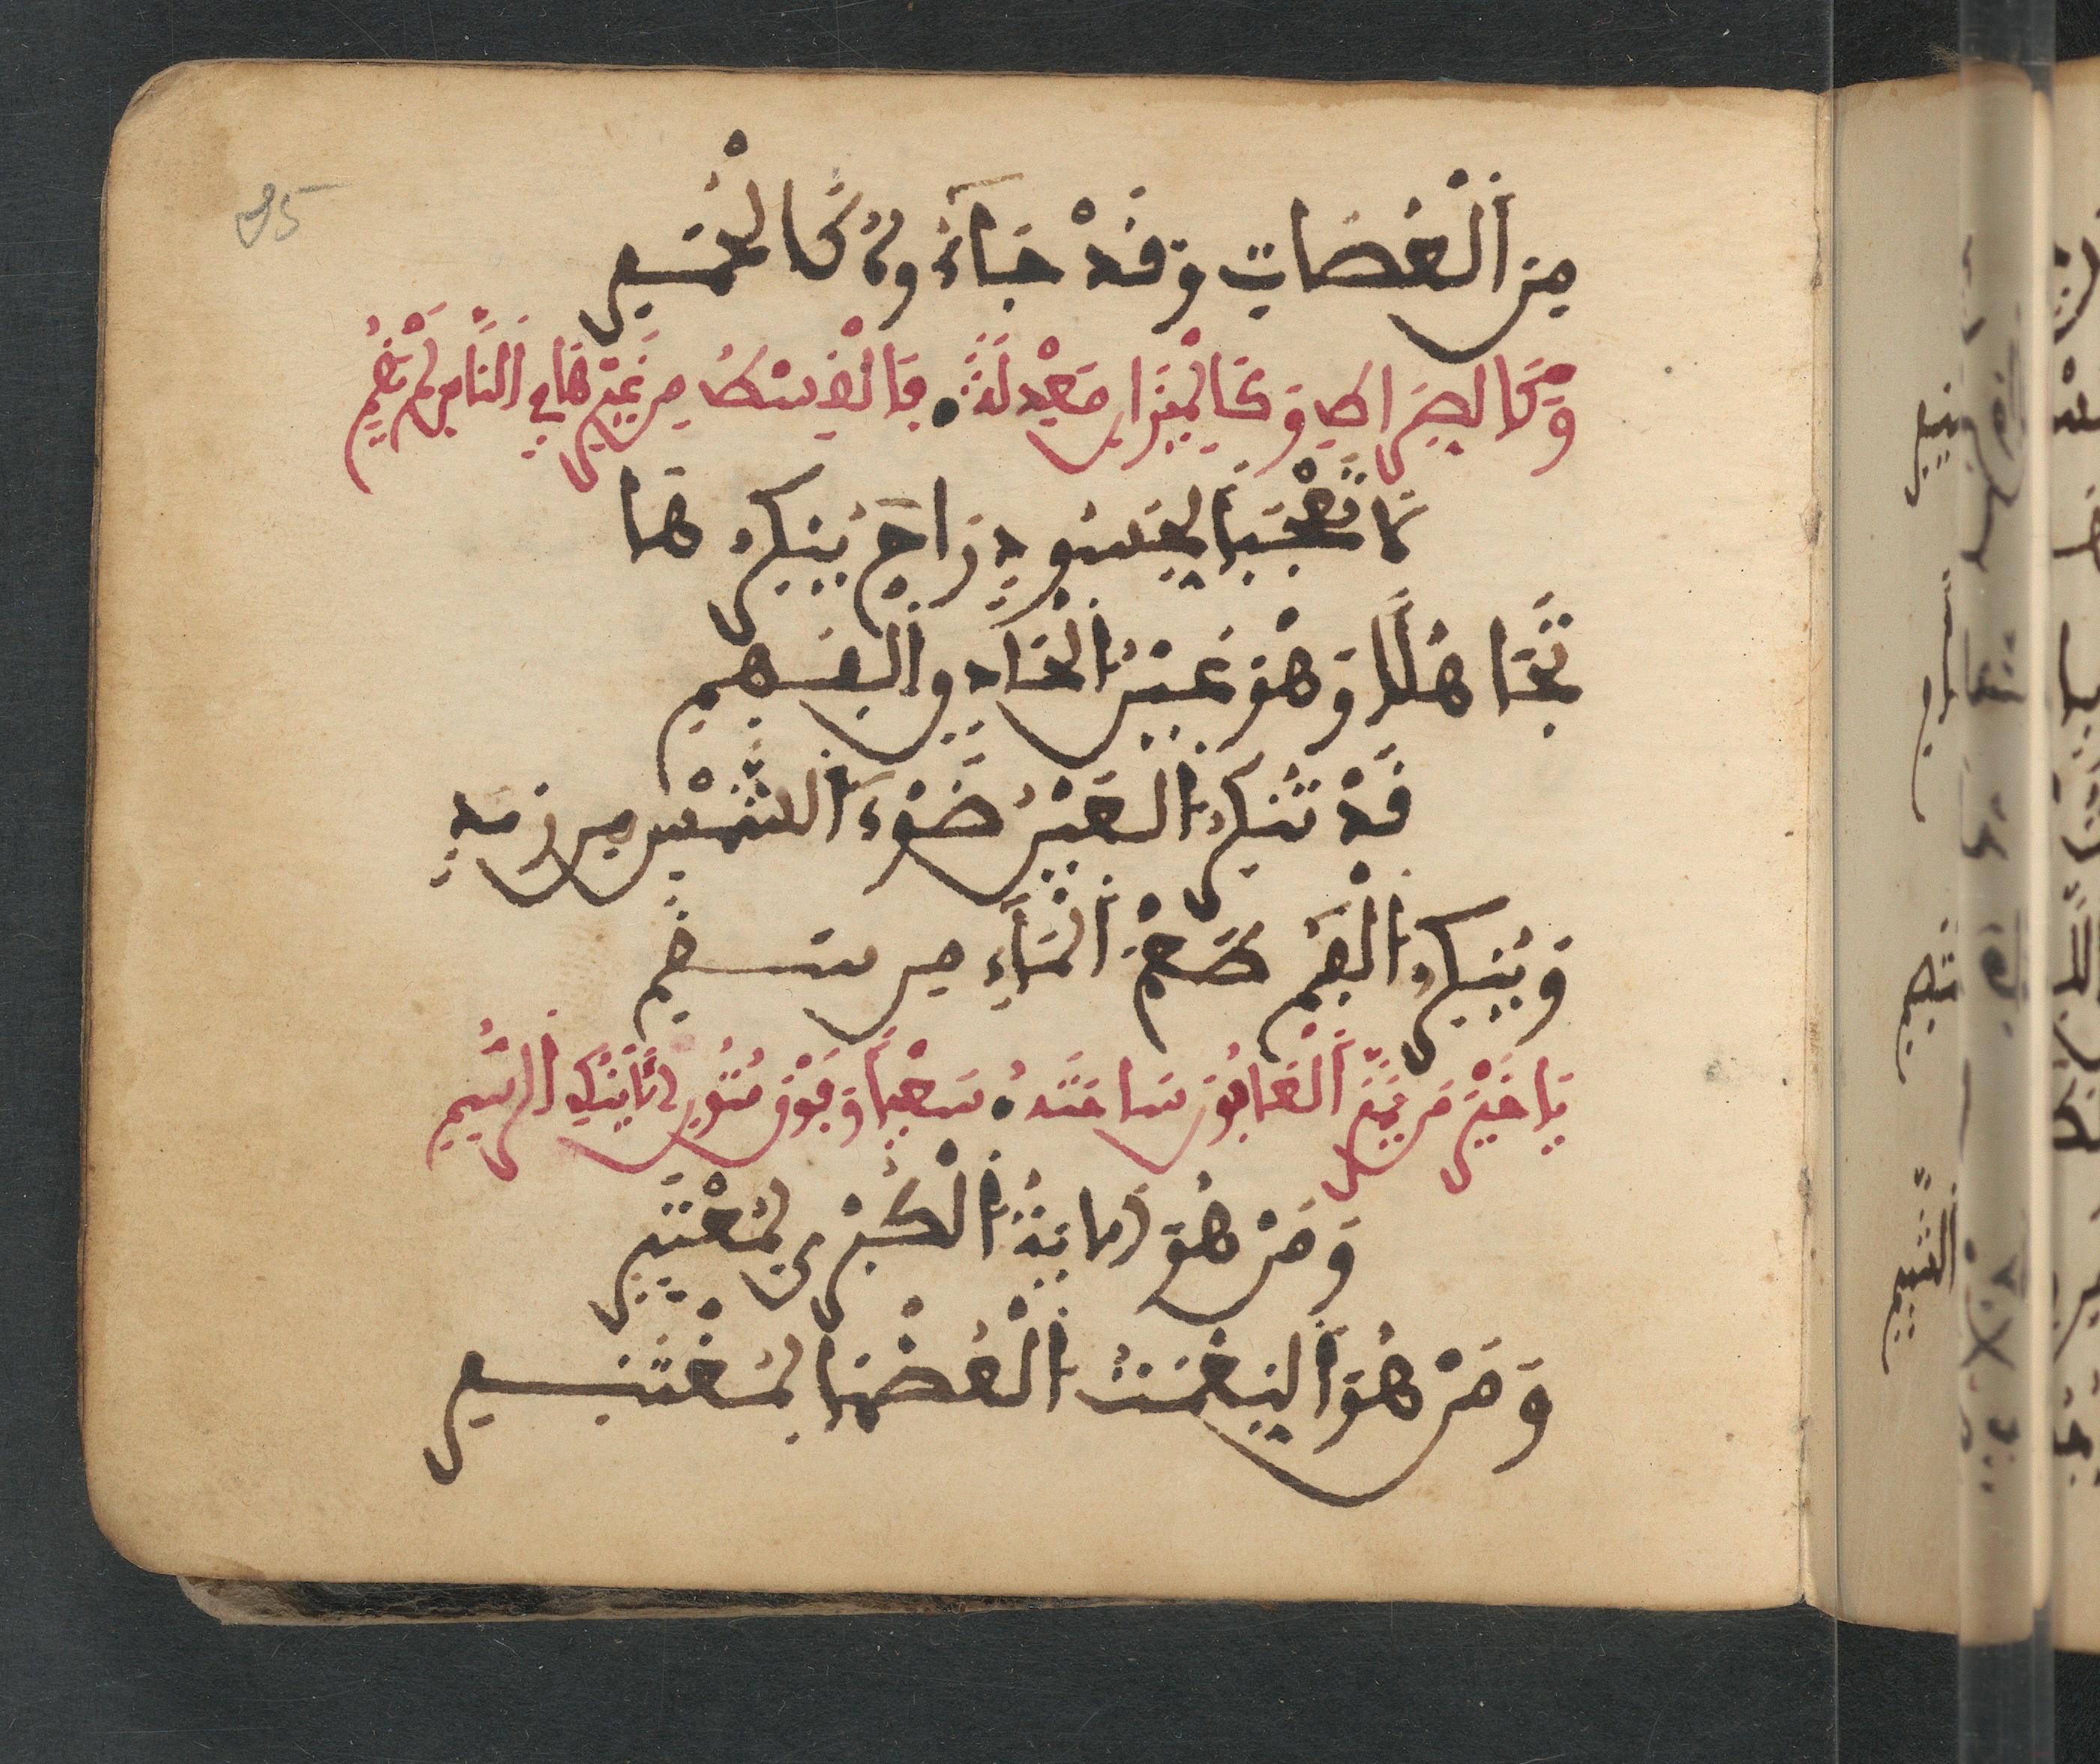 مِنَ ٱلْعُصَاتِ وَقَدْ جَاءُوهُ كَالْحُمَمِ
وَكَالصِّرَاطِ وَكَالْمِيزَانِ مَعْدِلَةً فَالْقِسْطُ مِنْ غَيْرِهَا فِي ٱلنَّاسِ لَمْ يَقُمِ
لَا تَعْجَبًا لِحَسُودٍ رَاحَ يُنْكِرُهَا
تَجَاهُلًا وَهْوَ عَيْنُ ٱلْحَاذِقِ ٱلْفَهِمِ
قَدْ تُنْكِرُ ٱلْعَيْنُ ضَوْءَ ٱلشَّمْسِ مِنْ رَمَدٍ
وَيُنْكِرُ ٱلْفَمُ طَعْمَ ٱلْمَاءِ مِنْ سَقَمِ
يَا خَيْرَ مَنْ يَمَّمَ ٱلْعَافُونَ سَاحَتَهُ سَعْيًا وَفَوْقَ مُتُونِ ٱلْأَيْنُقِ ٱلرُّسُمِ
وَمَنْ هُوَ ٱلْآيَةُ ٱلْكُبْرَى لِمُعْتَبِرٍ
وَمَنْ هُوَ ٱلنِّعْمَتُ ٱلْعُظْمَا لِمُغْتَنِمِ
95